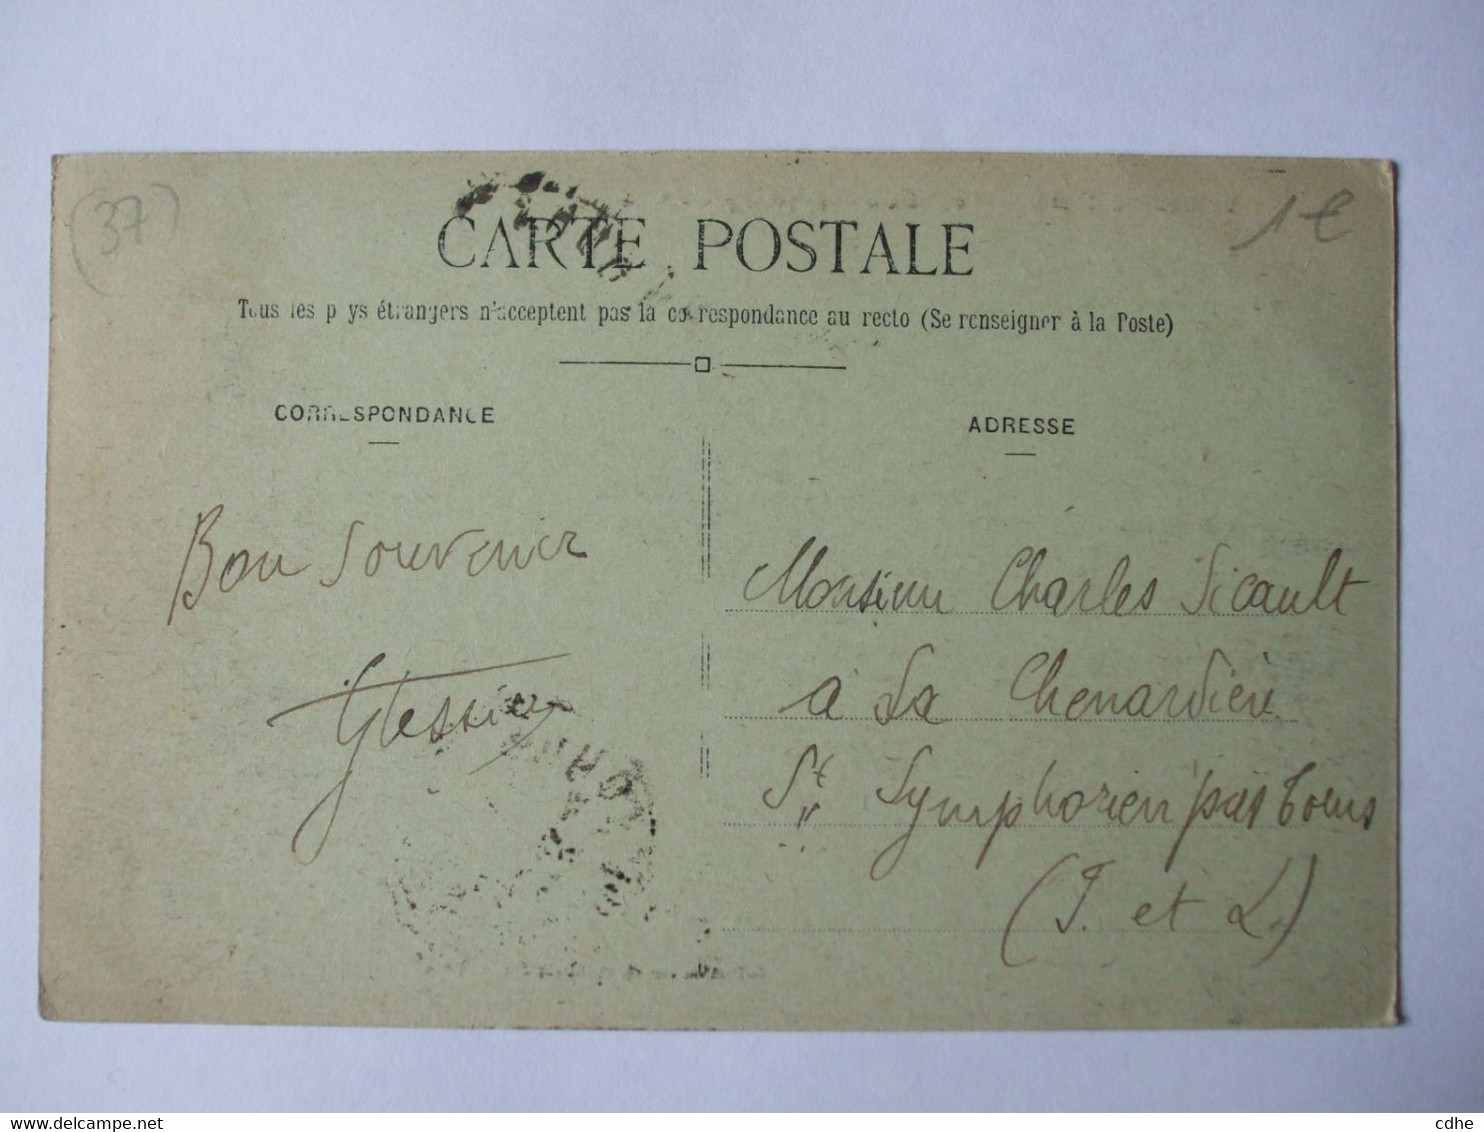 (37)
1€
CARTE POSTALE
Tous les pays étrangers n'acceptent pas la correspondance au recto (Se renseigner à la Poste)
CORRESPONDANCE
Bon Souvenir
ADRESSE
Monsieur Charles Sicault
a La Chenardière
St Symphorien pas Tours
(I. et L.)
delcampe.net
cdhe